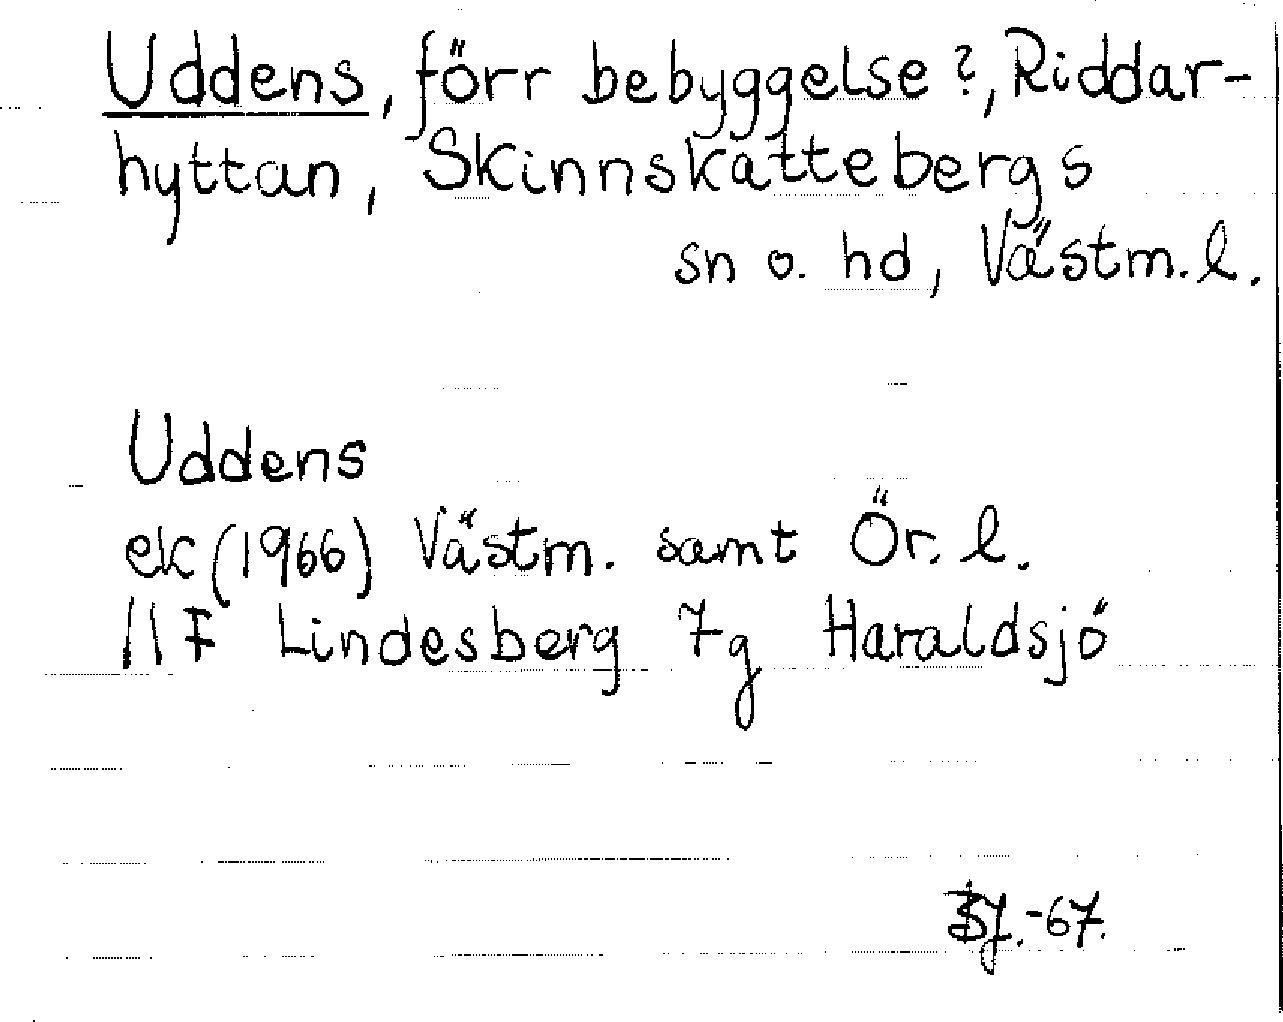 Uddens, förr bebyggelse?, Riddar-
hyttan, Skinnskattebergs
sn o. hd, Västm. l.
Uddens
ek (1966) Västm. samt Ör. l.
11F Lindesberg 7g Haraldsjö
BJ.-67.